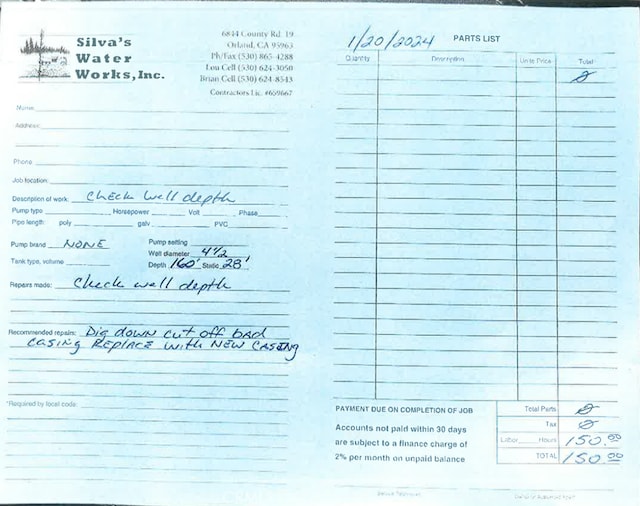 Silva's
Water
Works, Inc.
6844 County Rd. 19
Orland, CA 95963
Ph/Fax (530) 865-4288
Lou Cell (530) 624-3050
Brian Cell (530) 624-8543
Contractors Lic. #659667
Name
Address
Phone
Job location:
Description of work: Check well depth
Pump type Horsepower Volt Phase
Pipe length: poly galv PVC
Pump brand NONE Pump setting
Well diameter 4 1/2
Tank type, volume Depth 160' Static 28'
Repairs made: Check well depth
Recommended repairs: Dig down cut off bad
casing Replace with NEW CASING
*Required by local code:
1/20/2024 PARTS LIST
Quantity Description Unit Price Total
Ø
PAYMENT DUE ON COMPLETION OF JOB
Accounts not paid within 30 days
are subject to a finance charge of
2% per month on unpaid balance
Total Parts Ø
Tax Ø
Labor Hours 150.00
TOTAL 150.00